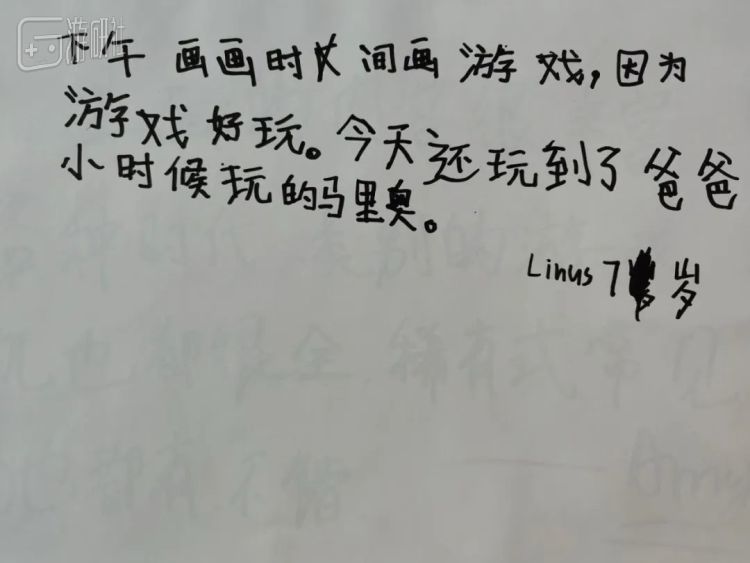 游研社
下午画画时间画游戏，因为
游戏好玩。今天还玩到了爸爸
小时候玩的马里奥。
Linus 7岁